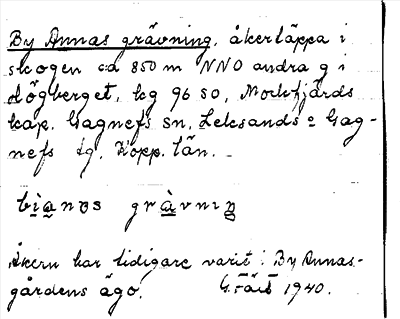 By Annas grävning, åkertäppa i
skogen ca 850 m NNO andra g i
Högberget, kg 96 SO, Mockfjärds
kap. Gagnefs sn, Leksands o Gag-
nefs tg, Kopp. län.
bianas grävniŋ
Åkern har tidigare varit i By Annas-
gårdens ägo. 1940.